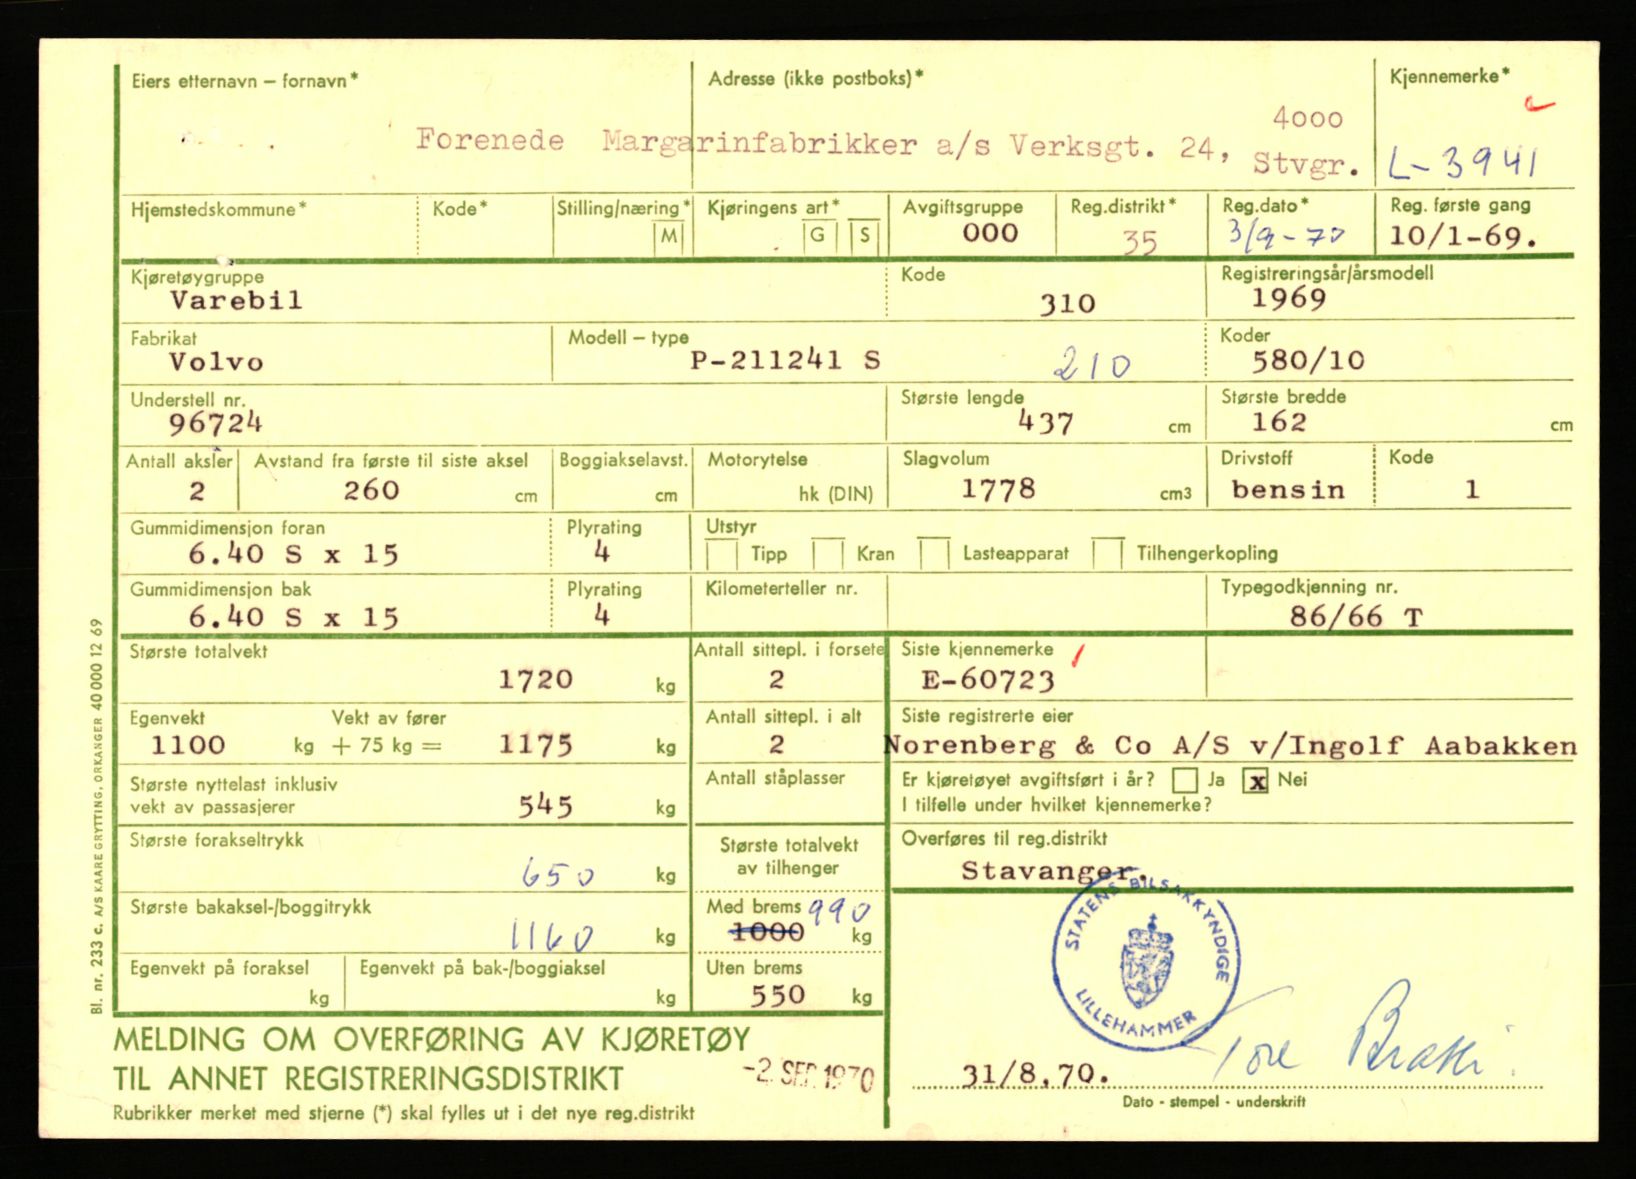 Eiers etternavn – fornavn*
Adresse (ikke postboks)*
Kjennemerke*
Forenede Margarinfabrikker a/s Verksgt. 24, 4000 Stvgr.
L-3941
Hjemstedskommune*
Kode*
Stilling/næring*
M
Kjøringens art*
G S
Avgiftsgruppe
000
Reg.distrikt*
35
Reg.dato*
3/9-70
Reg. første gang
10/1-69.
Kjøretøygruppe
Varebil
Kode
310
Registreringsår/årsmodell
1969
Fabrikat
Volvo
Modell – type
P-211241 S
210
Koder
580/10
Understell nr.
96724
Største lengde
437 cm
Største bredde
162 cm
Antall aksler
2
Avstand fra første til siste aksel
260 cm
Boggiakselavst.
cm
Motorytelse
hk (DIN)
Slagvolum
1778 cm3
Drivstoff
bensin
Kode
1
Gummidimensjon foran
6.40 S x 15
Plyrating
4
Utstyr
Tipp Kran Lasteapparat Tilhengerkopling
Gummidimensjon bak
6.40 S x 15
Plyrating
4
Kilometerteller nr.
Typegodkjenning nr.
86/66 T
Største totalvekt
1720 kg
Antall sittepl. i forsete
2
Siste kjennemerke
E-60723
Egenvekt Vekt av fører
1100 kg + 75 kg = 1175 kg
Antall sittepl. i alt
2
Siste registrerte eier
Norenberg & Co A/S v/Ingolf Aabakken
Største nyttelast inklusiv
vekt av passasjerer
545 kg
Antall ståplasser
Er kjøretøyet avgiftsført i år? Ja x Nei
I tilfelle under hvilket kjennemerke?
Største forakseltrykk
650 kg
Største totalvekt
av tilhenger
Overføres til reg.distrikt
Stavanger.
Største bakaksel-/boggitrykk
1160 kg
Med brems 990
1000 kg
Egenvekt på foraksel
kg
Egenvekt på bak-/boggiaksel
kg
Uten brems
550 kg
STATENS BILSAKKYNDIGE
LILLEHAMMER
MELDING OM OVERFØRING AV KJØRETØY
TIL ANNET REGISTRERINGSDISTRIKT
-2. SEP. 1970
Rubrikker merket med stjerne (*) skal fylles ut i det nye reg.distrikt
31/8.70.
Tore
Dato - stempel - underskrift
Bl. nr. 233 c. A/S KAARE GRYTTING, ORKANGER 40 000 12 69